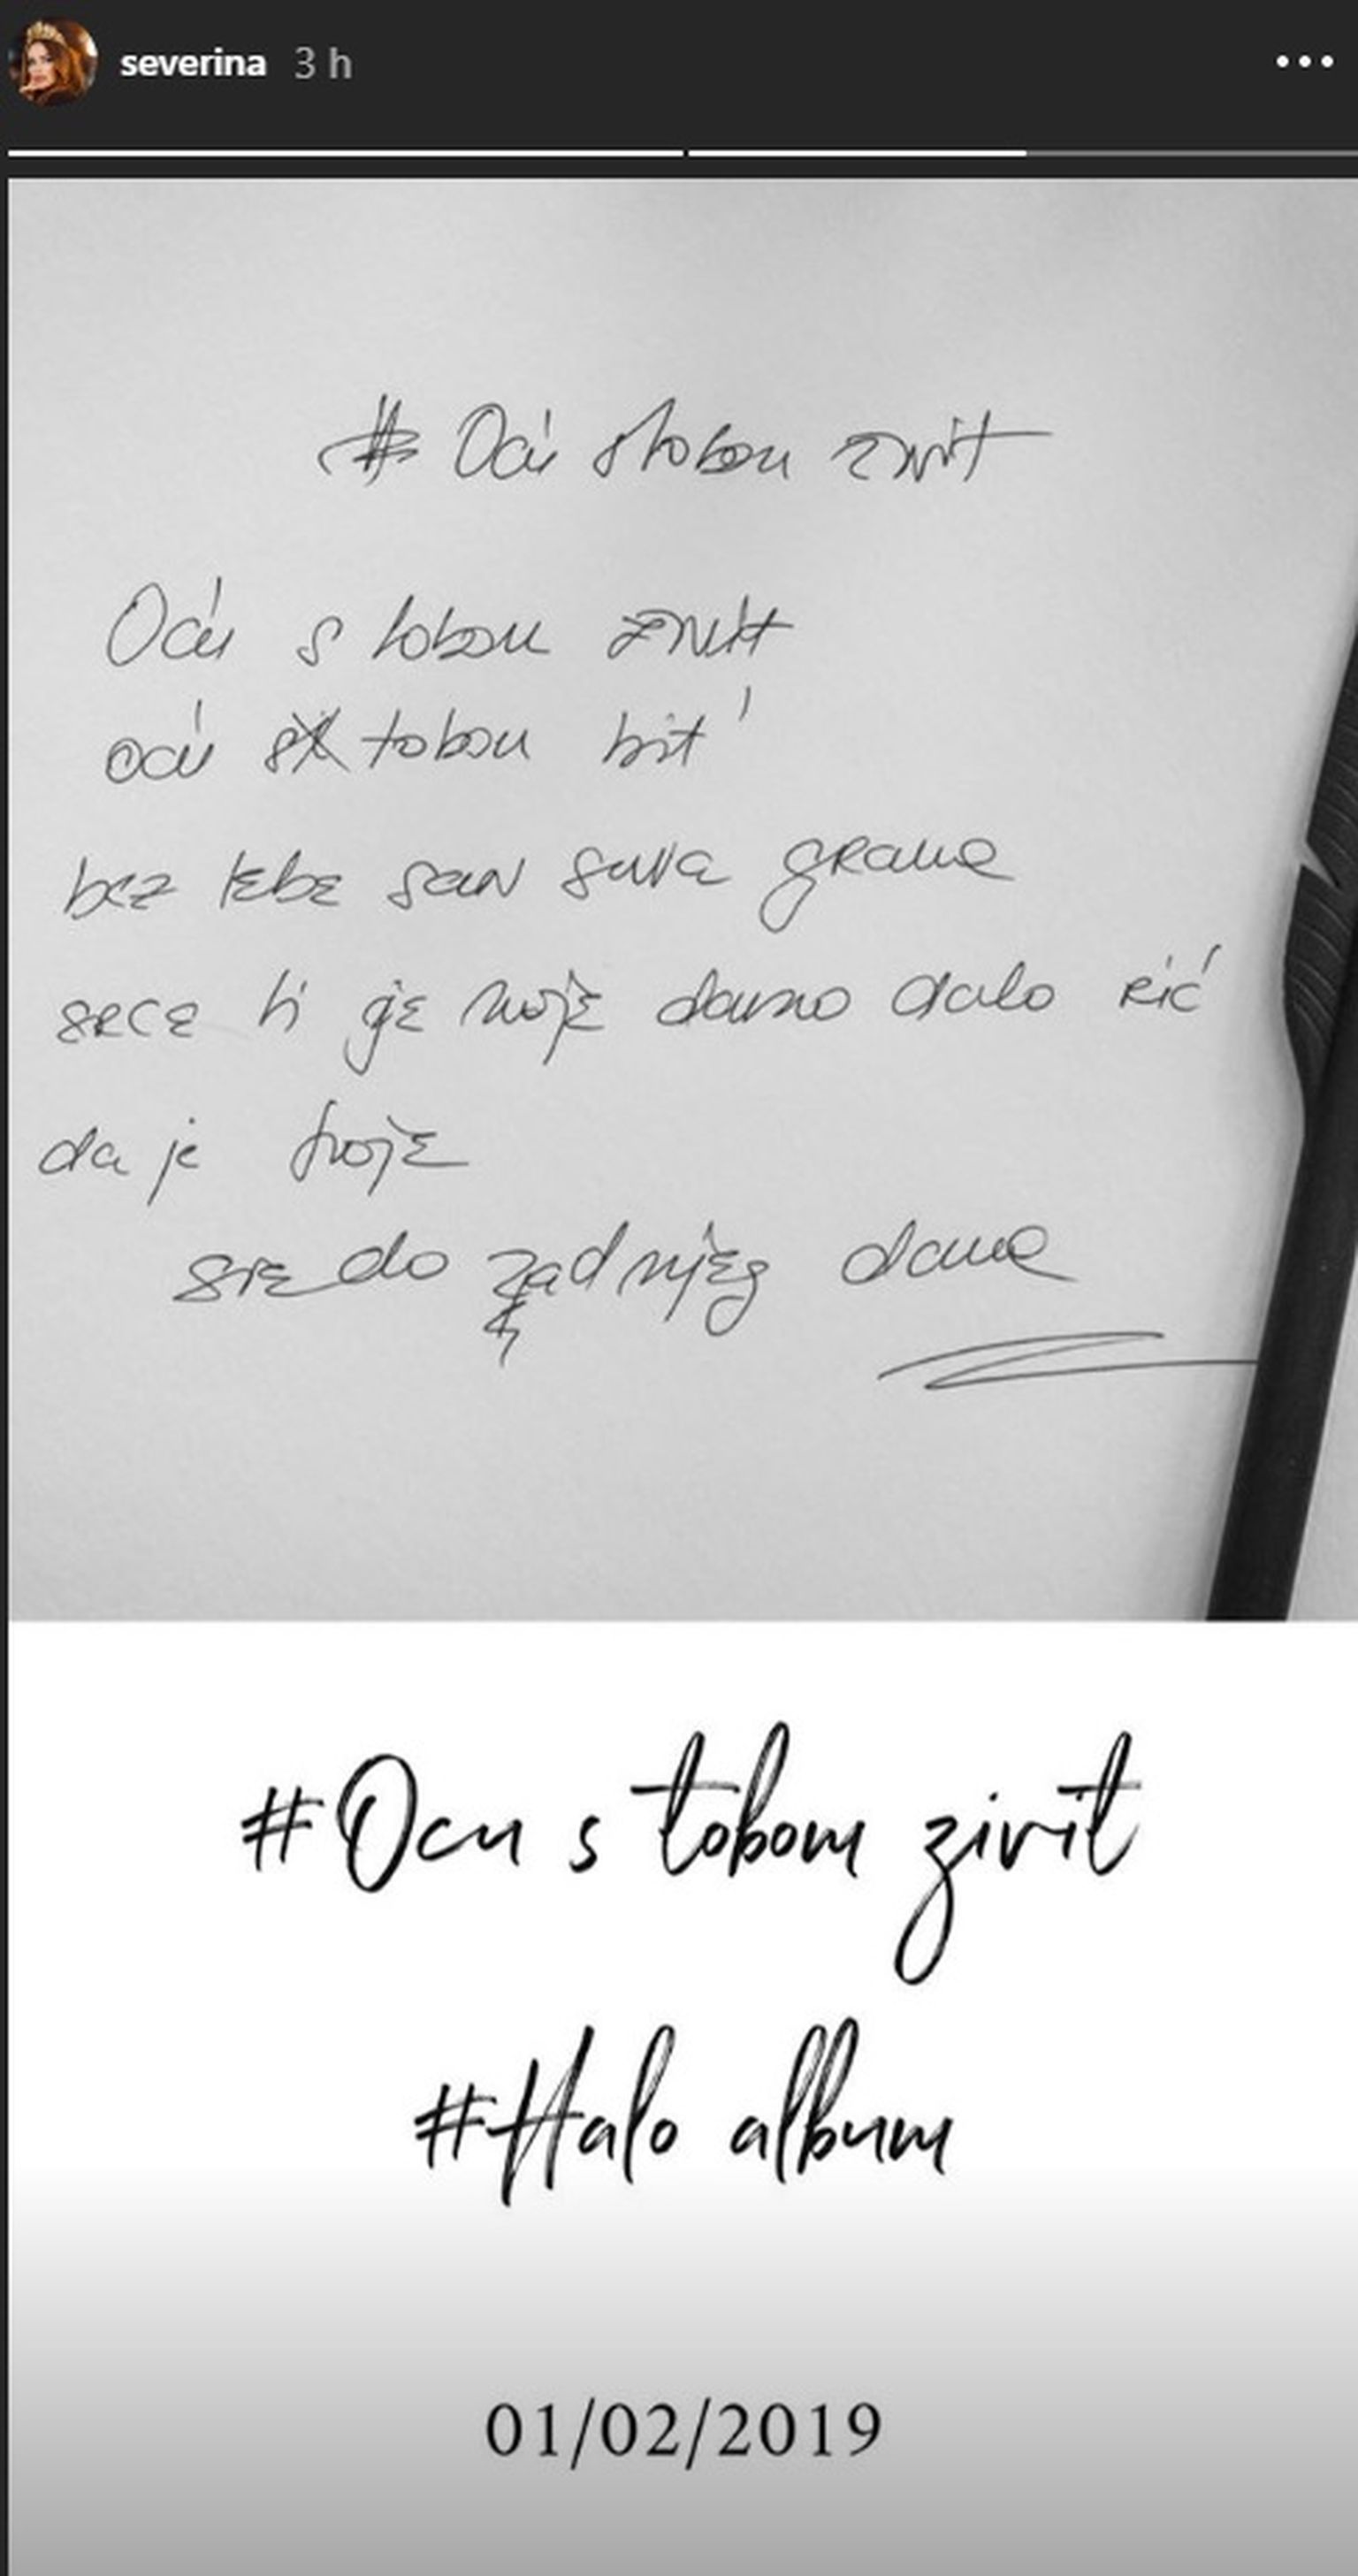 severina 3 h
# Oću s tobom živit
Oću s tobom živit
oću s tobom bit'
bez tebe san suva grana
srce ti je moje davno dalo rić
da je tvoje
sve do zadnjeg dana
#Ocu s tobom zivit
#Halo album
01/02/2019